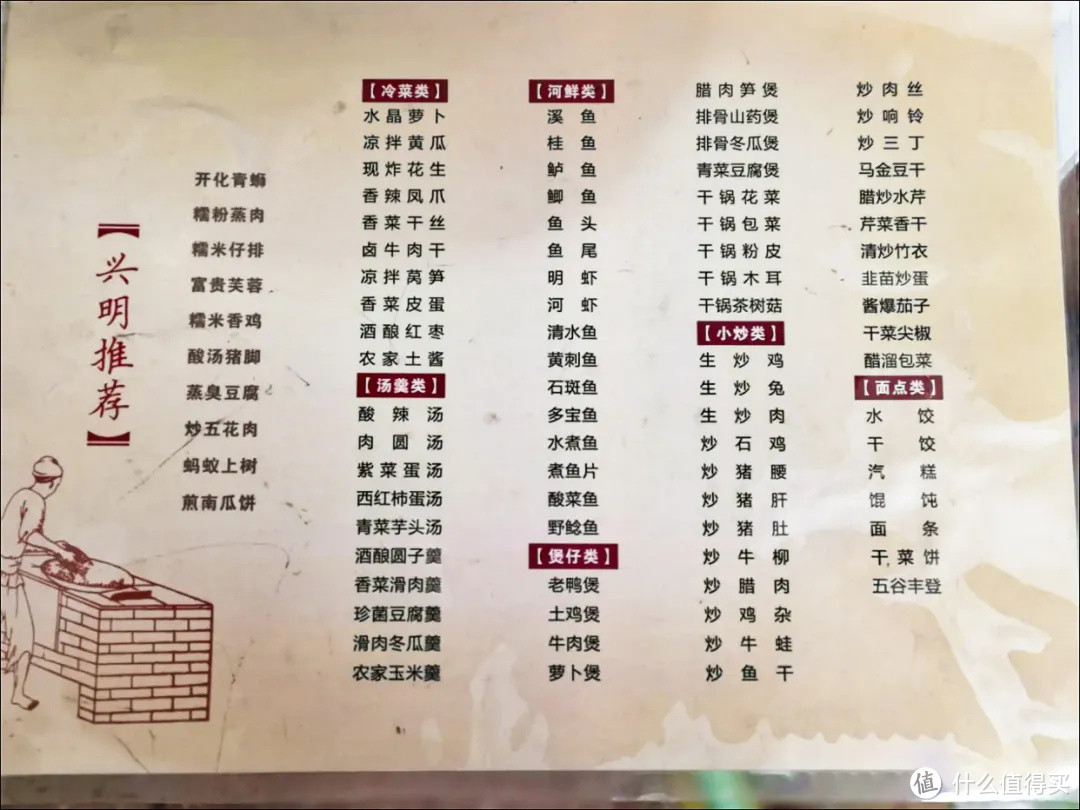 【兴明推荐】
开化青蛳
糯粉蒸肉
糯米仔排
富贵芙蓉
糯米香鸡
酸汤猪脚
蒸臭豆腐
炒五花肉
蚂蚁上树
煎南瓜饼
【冷菜类】
水晶萝卜
凉拌黄瓜
现炸花生
香辣凤爪
香菜干丝
卤牛肉干
凉拌莴笋
香菜皮蛋
酒酿红枣
农家土酱
【汤羹类】
酸辣汤
肉圆汤
紫菜蛋汤
西红柿蛋汤
青菜芋头汤
酒酿圆子羹
香菜滑肉羹
珍菌豆腐羹
滑肉冬瓜羹
农家玉米羹
【河鲜类】
溪鱼
桂鱼
鲈鱼
鲫鱼
鱼头
鱼尾
明虾
河虾
清水鱼
黄刺鱼
石斑鱼
多宝鱼
水煮鱼
煮鱼片
酸菜鱼
野鲶鱼
【煲仔类】
老鸭煲
土鸡煲
牛肉煲
萝卜煲
腊肉笋煲
排骨山药煲
排骨冬瓜煲
青菜豆腐煲
干锅花菜
干锅包菜
干锅粉皮
干锅木耳
干锅茶树菇
【小炒类】
生炒鸡
生炒兔
生炒肉
炒石鸡
炒猪腰
炒猪肝
炒猪肚
炒牛柳
炒腊肉
炒鸡杂
炒牛蛙
炒鱼干
炒肉丝
炒响铃
炒三丁
马金豆干
腊炒水芹
芹菜香干
清炒竹衣
韭苗炒蛋
酱爆茄子
干菜尖椒
醋溜包菜
【面点类】
水饺
干饺
汽糕
馄饨
面条
干菜饼
五谷丰登
值 什么值得买